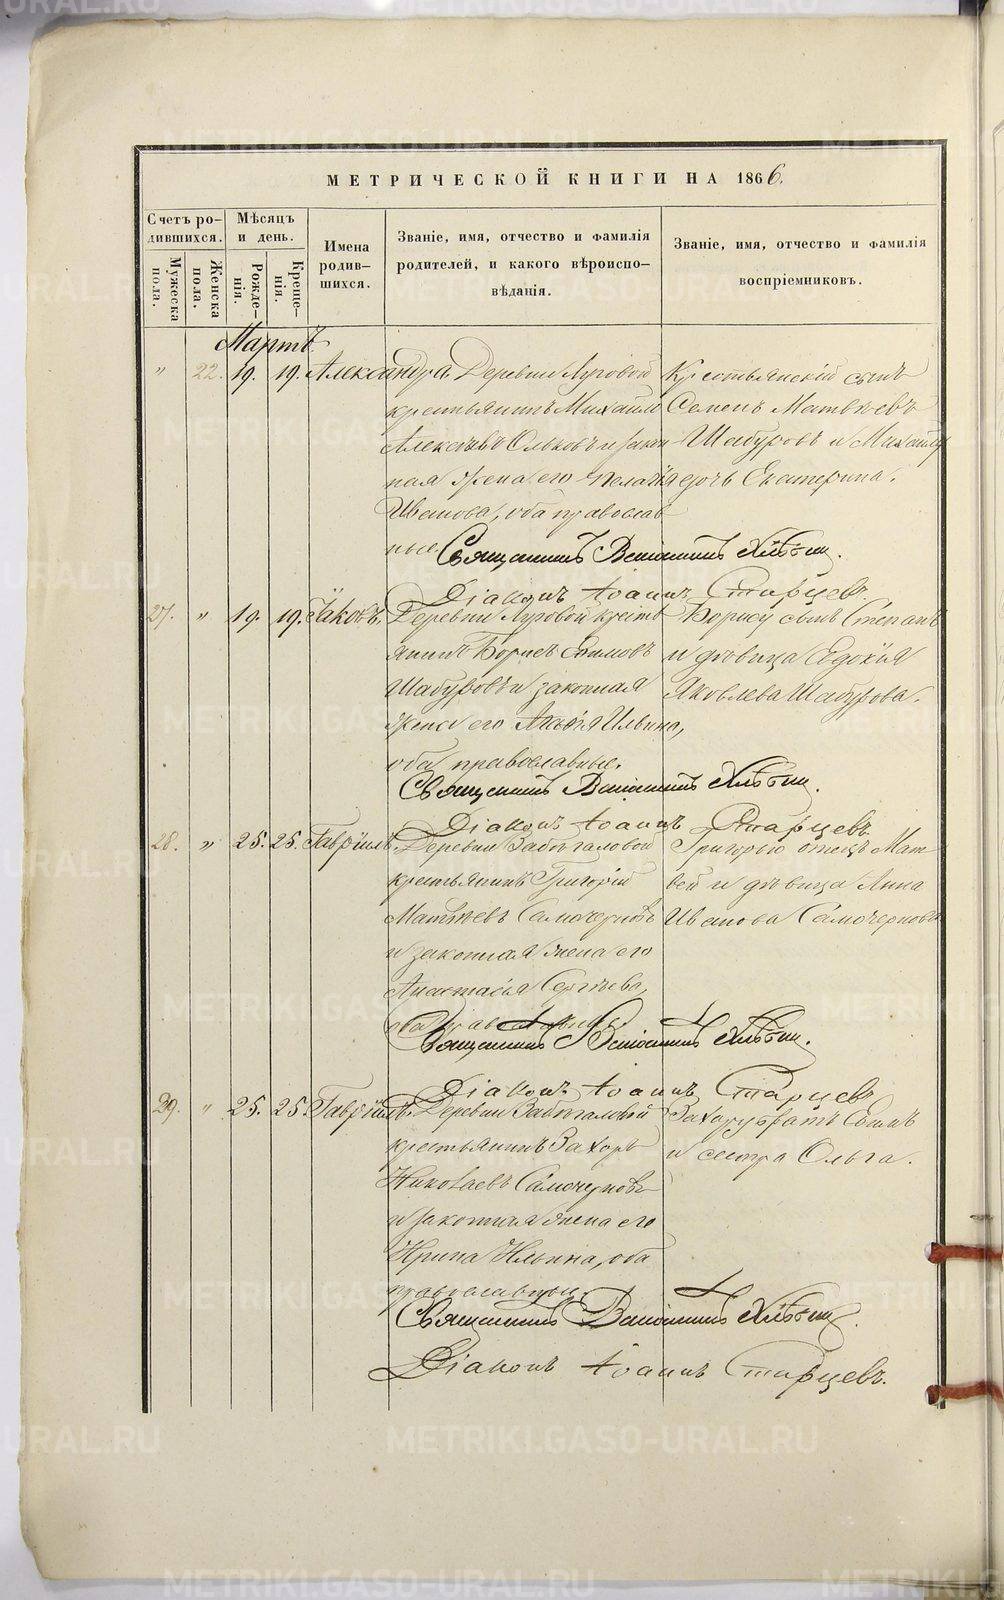 МЕТРИЧЕСКОЙ КНИГИ НА 1866.
Счетъ ро-
дившихся.
Мужеска пола.
Женска пола.
Мѣсяцъ
и день.
Рожде-
нія.
Креще-
нія.
Имена
родив-
шихся.
Званіе, имя, отчество и фамилія
родителей, и какого вѣроиспо-
вѣданія.
Званіе, имя, отчество и фамилія
воспріемниковъ.
Мартъ
" 22. 19. 19. Александра.
Деревни Луговой
крестьянинъ Михаилъ
Алексѣевъ и закон
ная жена его Пелагія
Иванова, оба православ
ные.
Крестьянскій сынъ
Семенъ Матвѣевъ
Шабуровъ и Михаилу
дочь Екатерина.
Священникъ Веніаминъ
Діаконъ Іоаннъ Старцевъ.
27. " 19. 19. Іаковъ.
Деревни Луговой кресть
янинъ Борисъ Ефимовъ
Шабуровъ и законная
жена его Ильина,
оба православные.
Борису сынъ Степанъ
и дѣвица Евдокія
Яковлева Шабурова.
Священникъ Веніаминъ
Діаконъ Іоаннъ Старцевъ.
28. " 25. 25. Гавріилъ.
Деревни
крестьянинъ Григорій
Матвѣевъ Самочерновъ
и законная жена его
Анастасія Сергѣева,
оба православные.
Григорью отецъ Мат-
вей и дѣвица Анна
Иванова Самочернова
Священникъ Веніаминъ
Діаконъ Іоаннъ Старцевъ
29. " 25. 25. Гавріилъ.
Деревни
крестьянинъ Захаръ
Николаевъ Самочерновъ
и законная жена его
Ирина Ильина, оба
православные.
Захару братъ
и сестра Ольга.
Священникъ Веніаминъ
Діаконъ Іоаннъ Старцевъ.
METRIKI.GASO-URAL.RU